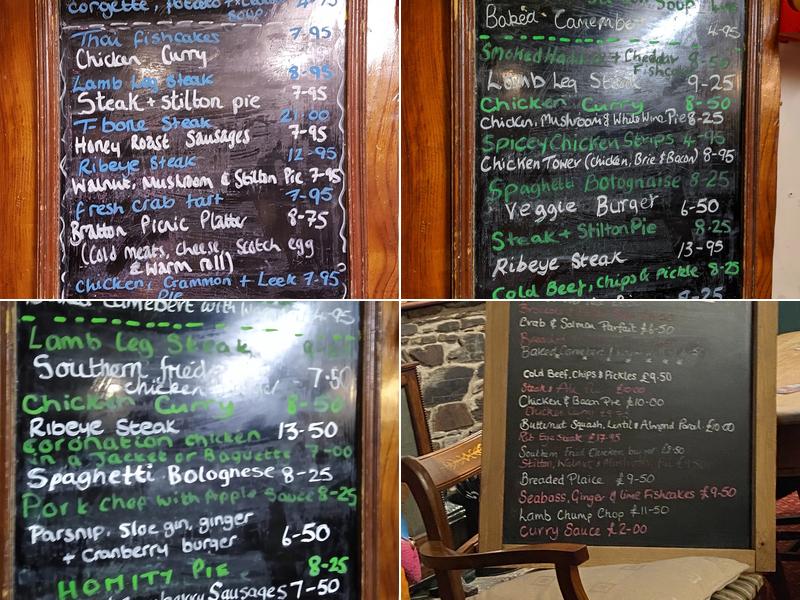 corgette, potato + 4-95
soup
Thai fishcakes 7.95
Chicken Curry
Lamb Leg Steak 8-95
Steak + Stilton pie 7-95
T-bone Steak 21.00
Honey Roast Sausages 7-95
Ribeye Steak 12-95
Walnut, Mushroom & Stilton Pie 7-95
fresh crab tart 7-95
Bratton Picnic Platter 8-75
(Cold meats, cheese, scotch egg
& warm roll)
Chicken, Grammon + Leek 7-95
Pie
Soup
Baked Camembert 4-95
Smoked Haddock + Cheddar 8-50
Fishcakes
Lamb Leg Steak 9-25
Chicken Curry 8-50
Chicken, Mushroom & White Wine Pie 8-25
Spicy Chicken Strips 4-95
Chicken Tower (chicken, Brie & Bacon) 8-95
Spaghetti Bolognaise 8-25
Veggie Burger 6-50
Steak + Stilton Pie 8-25
Ribeye Steak 13-95
Cold Beef, Chips & Pickle 8-25
Baked Camembert with 4-95
Lamb Leg Steak 9-25
Southern fried 7-50
chicken
Chicken Curry 8-50
Ribeye Steak 13-50
Coronation chicken
in a Jacket or Baguette 7-00
Spaghetti Bolognese 8-25
Pork chop with Apple Sauce 8-25
Parsnip, Sloe gin, ginger
+ Cranberry burger 6-50
HOMITY PIE 8-25
Sausages 7-50
Crab & Salmon Parfait £6-50
Baked Camembert
Cold Beef, Chips & Pickles £9.50
Steak & Ale £10.00
Chicken & Bacon Pie £10-00
Chicken Curry £9.75
Butternut Squash, Lentil & Almond £10.00
Rib Eye Steak £17.95
Southern Fried Chicken burger £8-50
Stilton, Walnut & Mushroom
Breaded Plaice £9-50
Seabass, Ginger & Lime Fishcakes £9-50
Lamb Chump Chop £11-50
Curry Sauce £2-00